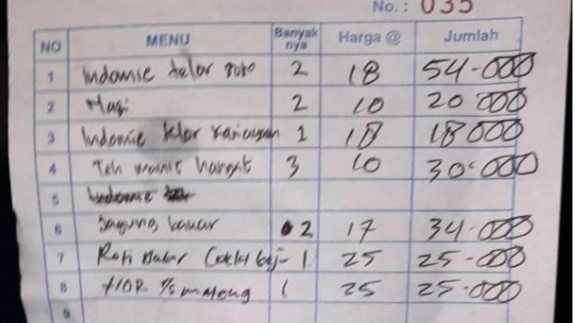 No.: 035
NO MENU Banyak nya Harga @ Jumlah
1 Indomie telor soto 2 18 54.000
2 Nasi 2 10 20 000
3 Indomie telor 1 18 18 000
4 Teh manis hangat 3 10 30.000
5 Indomie
6 Jagung bakar 2 17 34.000
7 Roti Bakar Coklat keju 1 25 25.000
8 1 25 25.000
9